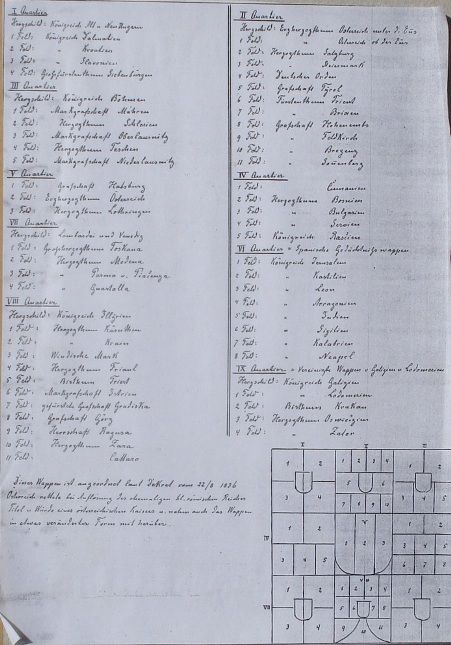 I Quartier
Herzschild: Königreich Alt u Neu Ungarn
1 Feld: Königreich Dalmatien
2 Feld: " Kroatien
3 Feld: " Slavonien
4 Feld: Großfürstenthum Siebenbürgen
III Quartier
Herzschild: Königreich Böhmen
1 Feld: Markgrafschaft Mähren
2 Feld: Herzogthum Schlesien
3 Feld: Markgrafschaft Oberlausnitz
4 Feld: Herzogthum Teschen
5 Feld: Markgrafschaft Niederlausnitz
V Quartier
1 Feld: Grafschaft Habsburg
2 Feld: Erzherzogthum Österreich
3 Feld: Herzogthum Lothringen
VII Quartier
Herzschild: Lombardei und Venedig
1 Feld: Großherzogthum Toskana
2 Feld: Herzogthum Modena
3 Feld: " Parma u. Piacenza
4 Feld: " Guastalla
VIII Quartier
Herzschild: Königreich Illyrien
1 Feld: Herzogthum Kärnthen
2 Feld: " Krain
3 Feld: Windische Mark
4 Feld: Herzogthum Friaul
5 Feld: Bisthum Triest
6 Feld: Markgrafschaft Istrien
7 Feld: gefürstete Grafschaft Gradiska
8 Feld: Grafschaft Görz
9 Feld: Herrschaft Ragusa
10 Feld: Herzogthum Zara
11 Feld: Cattaro
Dieses Wappen ist angeordnet laut Dekret vom 22/8 1836
Österreich bei Auflösung des ehemaligen hl. römischen Reiches
Titel u Würde eines österreichischen Kaisers u. nahm auch das Wappen
in etwas veränderter Form mit herüber.
II Quartier
Herzschild: Erzherzogthum Österreich unter d. Ens
1 Feld: " Österreich ob der Ens
2 Feld: Herzogthum Salzburg
3 Feld: " Steiermark
4 Feld: Deutscher Orden
5 Feld: Grafschaft Tyrol
6 Feld: Fürstenthum Trient
7 Feld: " Brixen
8 Feld: Grafschaft Hohenembs
9 Feld: " Feldkirch
10 Feld: " Bregenz
11 Feld: " Sonnenberg
IV Quartier
1 Feld: Cumanien
2 Feld: Herzogthum Bosnien
3 Feld: " Bulgarien
4 Feld: " Servien
5 Feld: Königreich Rascien
VI Quartier = Spanische Gedächtnißwappen
1 Feld: Königreich Jerusalem
2 Feld: " Kastilien
3 Feld: " Leon
4 Feld: " Arragonien
5 Feld: " Indien
6 Feld: " Sizilien
7 Feld: " Kalabrien
8 Feld: " Neapel
IX Quartier = Vereinigte Wappen v Galizien u Lodomerien
Herzschild: Königreich Galizien
1 Feld: " Lodomerien
2 Feld: Bisthum Krakau
3 Feld: Herzogthum Oswiezim
4 Feld: " Zator
I II
1 2 1 2 3 4 1 2
3 4 5 6
7 8 9 10 11 3 4
IV V
1 2 1 2 3 1 2 3
3 4 5 4 6 7 8
VII
1 2 1 2 3 4 1 2
5 6 7 8
3 4 9 10 11 3 4